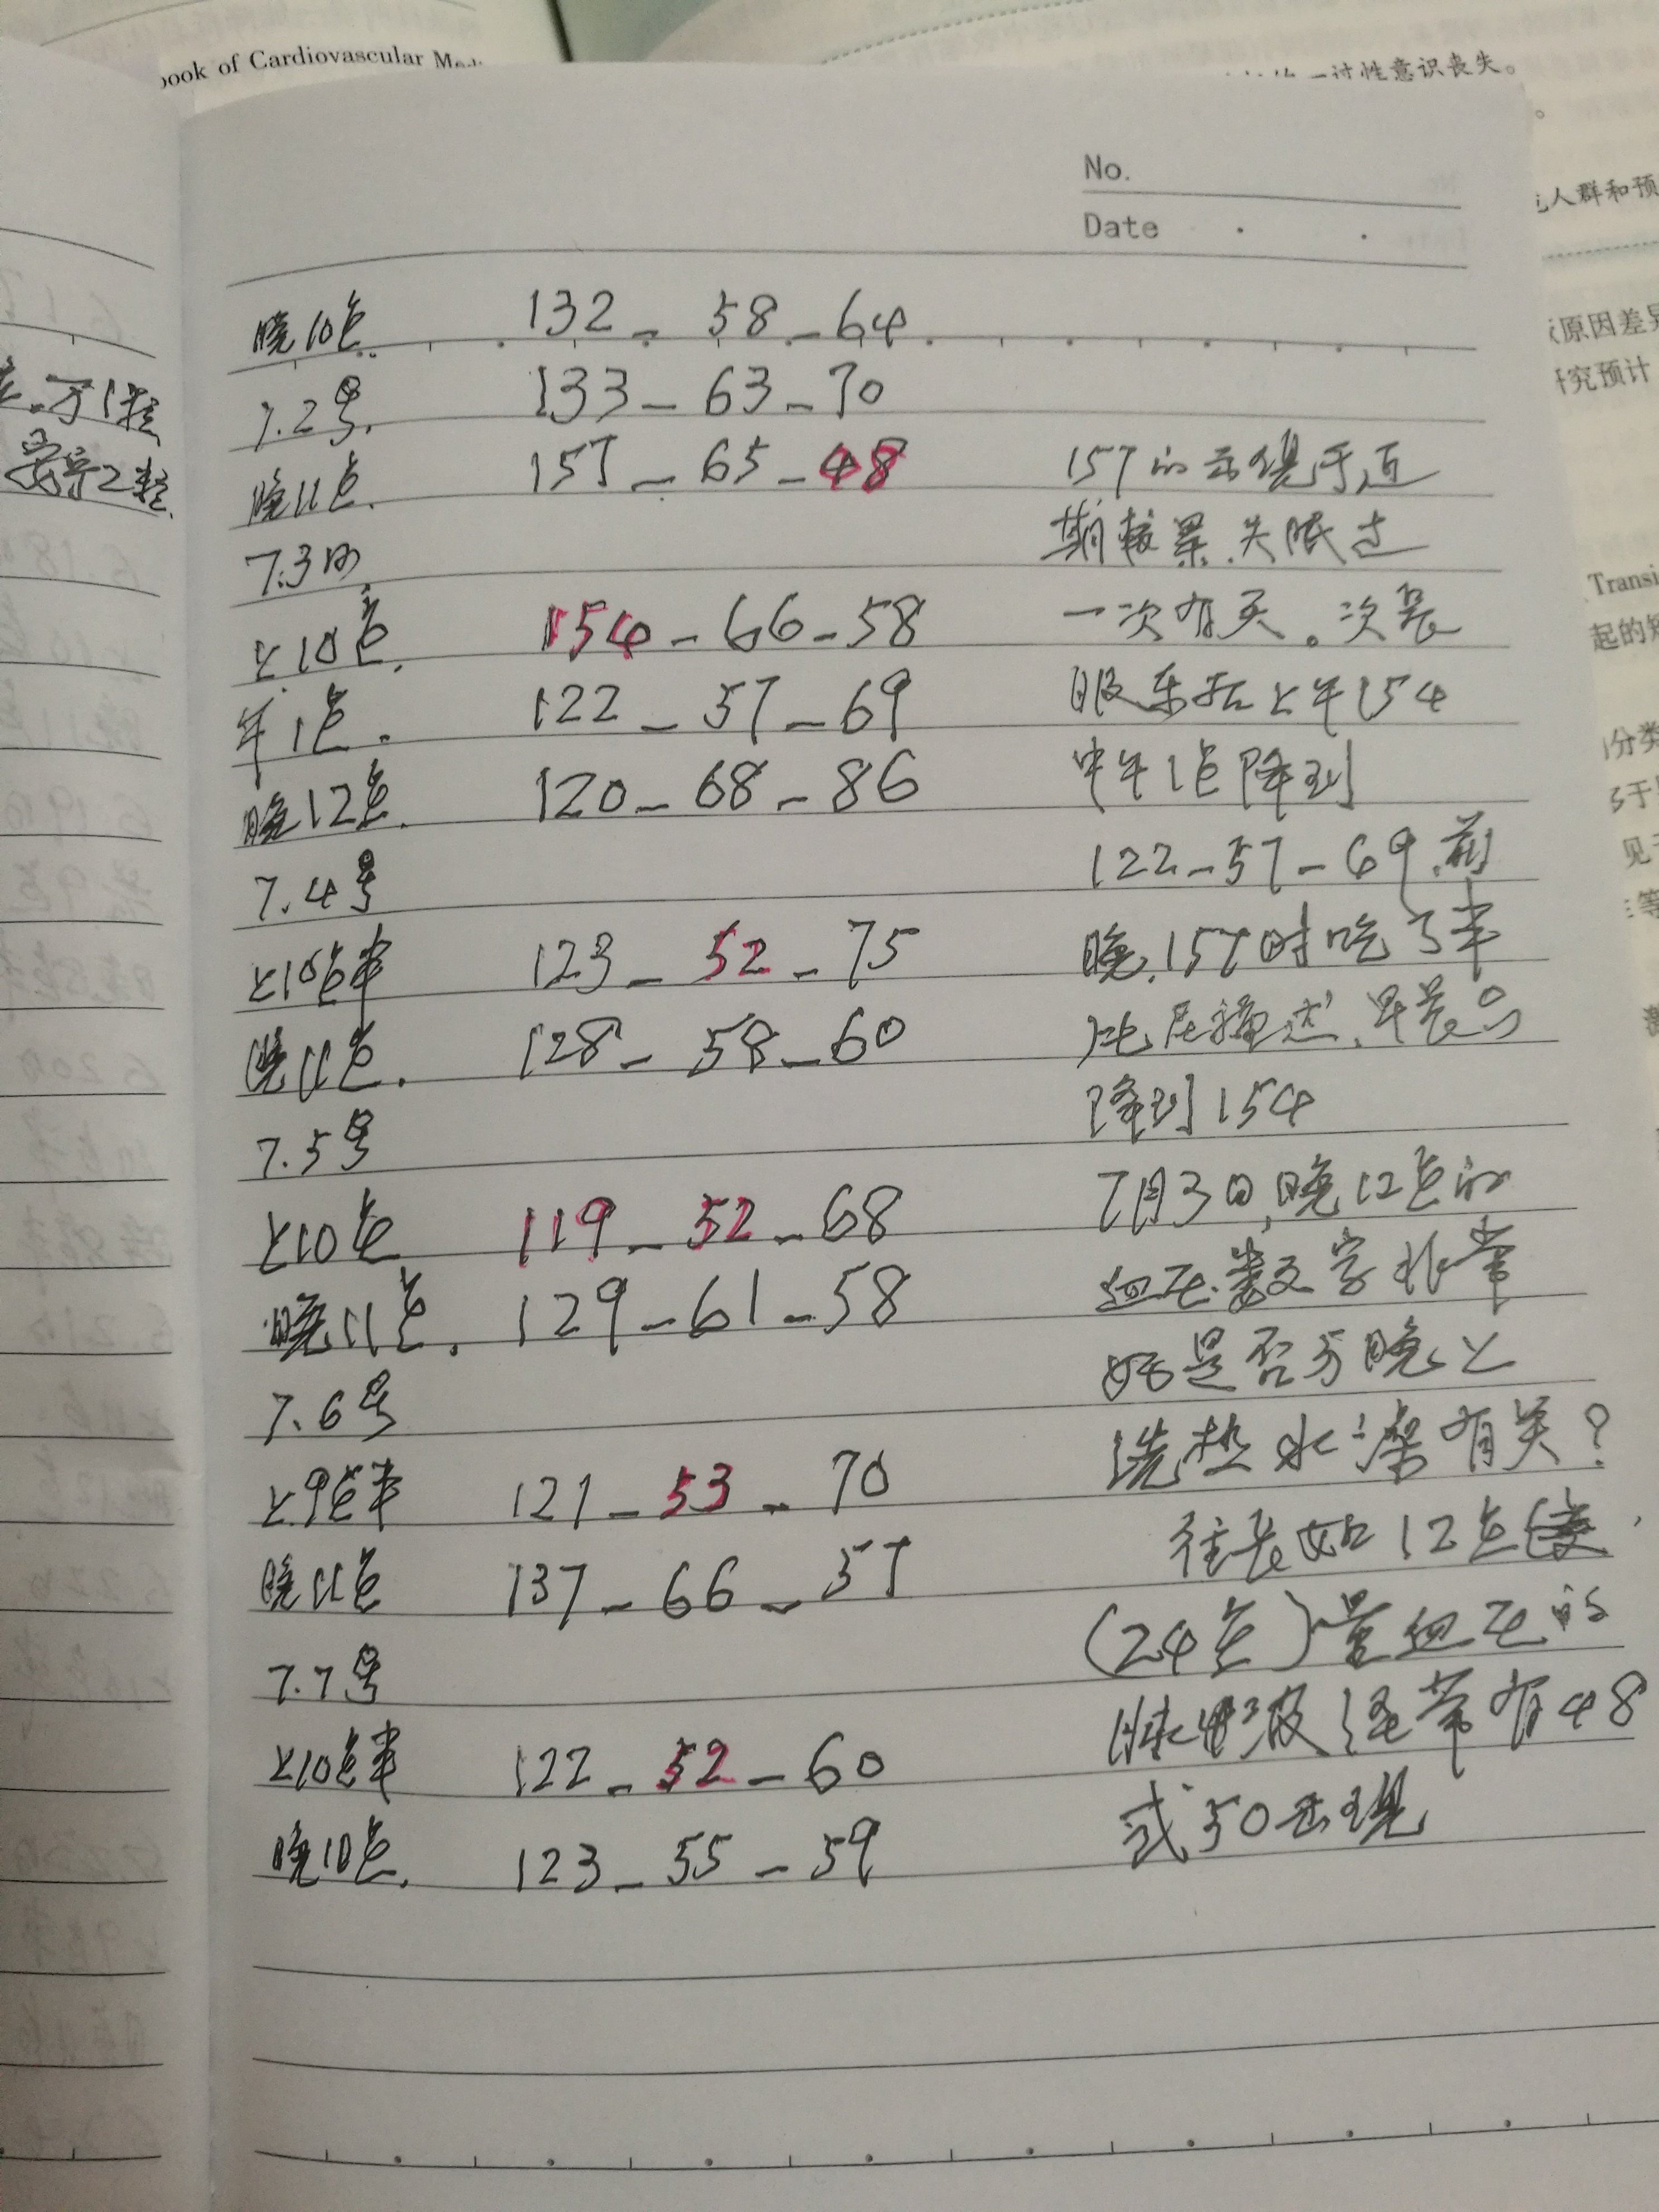 book of Cardiovascular
一过性意识丧失。
人群和预
原因差异
研究预计
Transi
起的短
分类
见于
等
No.
Date
晚10点. 132 - 58 - 64
7.2号. 133 - 63 - 70
晚11点. 157 - 65 - 48
7.3日
上10点. 154 - 66 - 58
午1点. 122 - 57 - 69
晚12点. 120 - 68 - 86
7.4号
上10点半 123 - 52 - 75
晚11点. 128 - 58 - 60
7.5号
上10点 119 - 52 - 68
晚11点. 129 - 61 - 58
7.6号
上9点半 121 - 53 - 70
晚11点 137 - 66 - 57
7.7号
上10点半 122 - 52 - 60
晚10点. 123 - 55 - 59
157的出现于近
期较累.失眠过
一次有关。次晨
服药后上午154
中午1点降到
122-57-69.前
晚.157时吃了半
片压稳达.早晨只
降到154
7月3日,晚12点的
血压数字非常
好是否与晚上
洗热水澡有关?
往长如12点
(24点)量血压的
脉波经常有48
或50出现
万1粒
2粒.